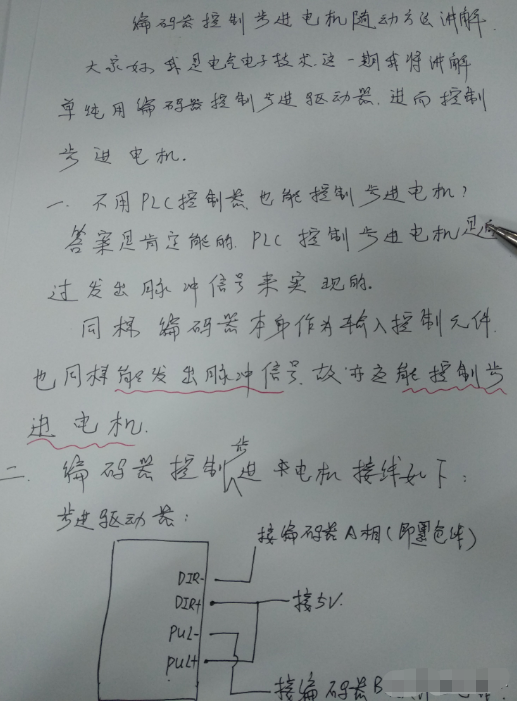 编码器控制步进电机随动方法讲解.
大家好我是电气电子技术.这一期我将讲解
单纯用编码器控制步进驱动器.进而控制
步进电机.
一. 不用PLC控制器也能控制步进电机?
答案是肯定能的.PLC控制步进电机是通
过发出脉冲信号来实现的.
同样编码器本身作为输入控制元件.
也同样能发出脉冲信号.故亦应能控制步
进电机.
二. 编码器控制步进电机接线如下:
步进驱动器:
接编码器A相(即黑色线)
DIR-
DIR+
接5V.
PUL-
PUL+
接编码器B